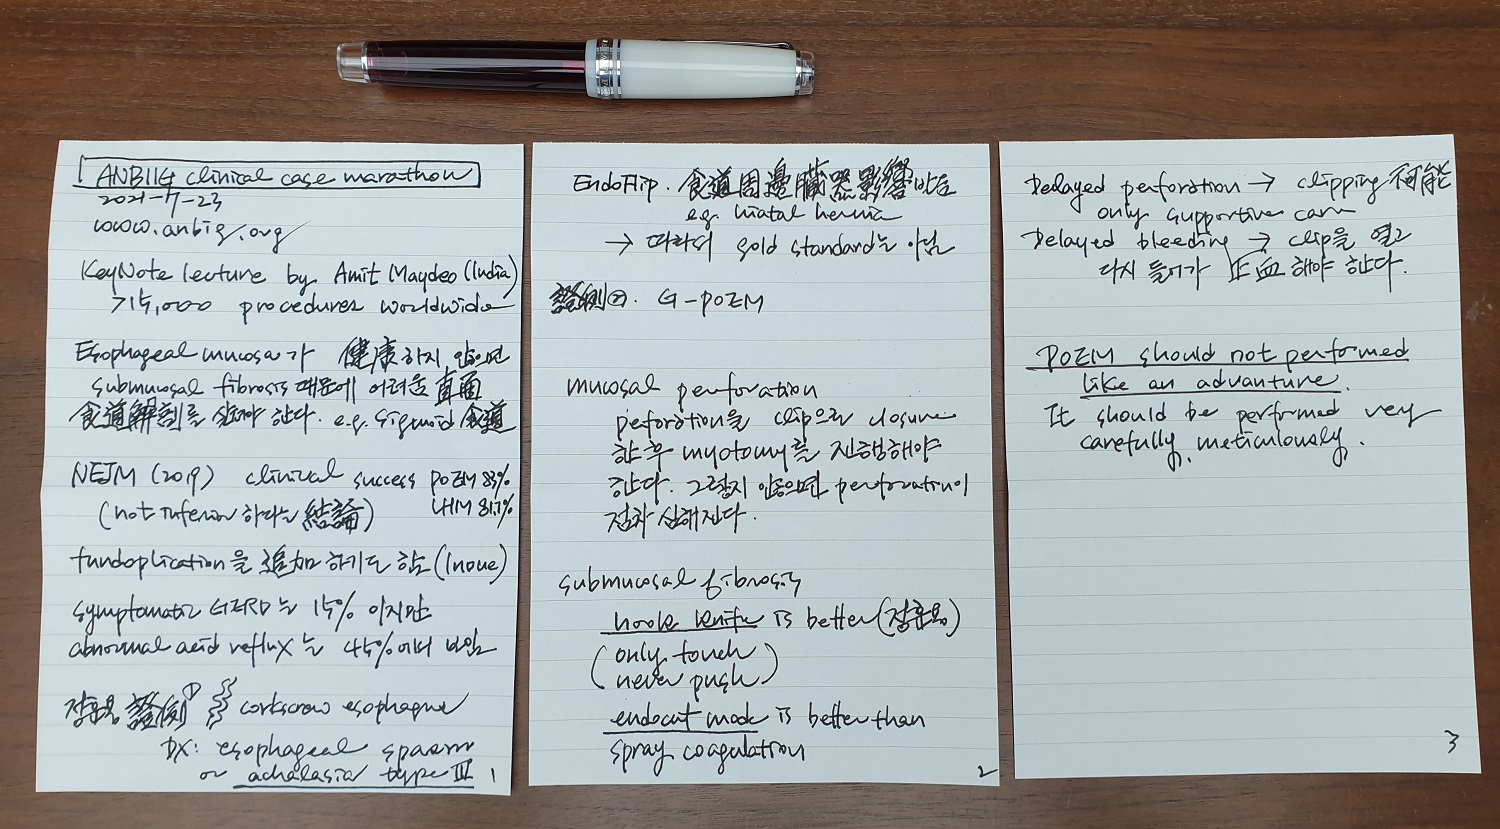 ANBIIG clinical case marathon
2021-7-23
www.anbig.org
KeyNote lecture by Amit Maydeo (India)
>15,000 procedures worldwide
Esophageal mucosa가 健康하지 않으면
submucosal fibrosis 때문에 어려운 直面
食道解剖를 살펴야 한다. e.g. sigmoid 食道
NEJM (2019) clinical success POEM 83%
(not inferior 하다는 結論) LHM 81.7%
fundoplication을 追加하기도 함 (Inoue)
symptomatic GERD는 15% 이지만
abnormal acid reflux는 45%에서 보임
證例① corkscrew esophagus
Dx: esophageal spasm
or achalasia type III
1
EndoFlip. 食道周邊臟器影響 받음
e.g. hiatal hernia
→ 따라서 gold standard는 아님
證例②. G-POEM
mucosal perforation
peforation을 clip으로 closure
한 후 myotomy를 진행해야
한다. 그렇지 않으면 perforation이
점차 심해진다.
submucosal fibrosis
hook knife is better
(only touch
never push)
endocut mode is better than
spray coagulation
2
Delayed perforation → clipping 不可能
only supportive care
Delayed bleeding → clip을 열고
다시 들어가 止血해야 한다.
POEM should not performed
like an advanture.
It should be performed very
carefully, meticulously.
3